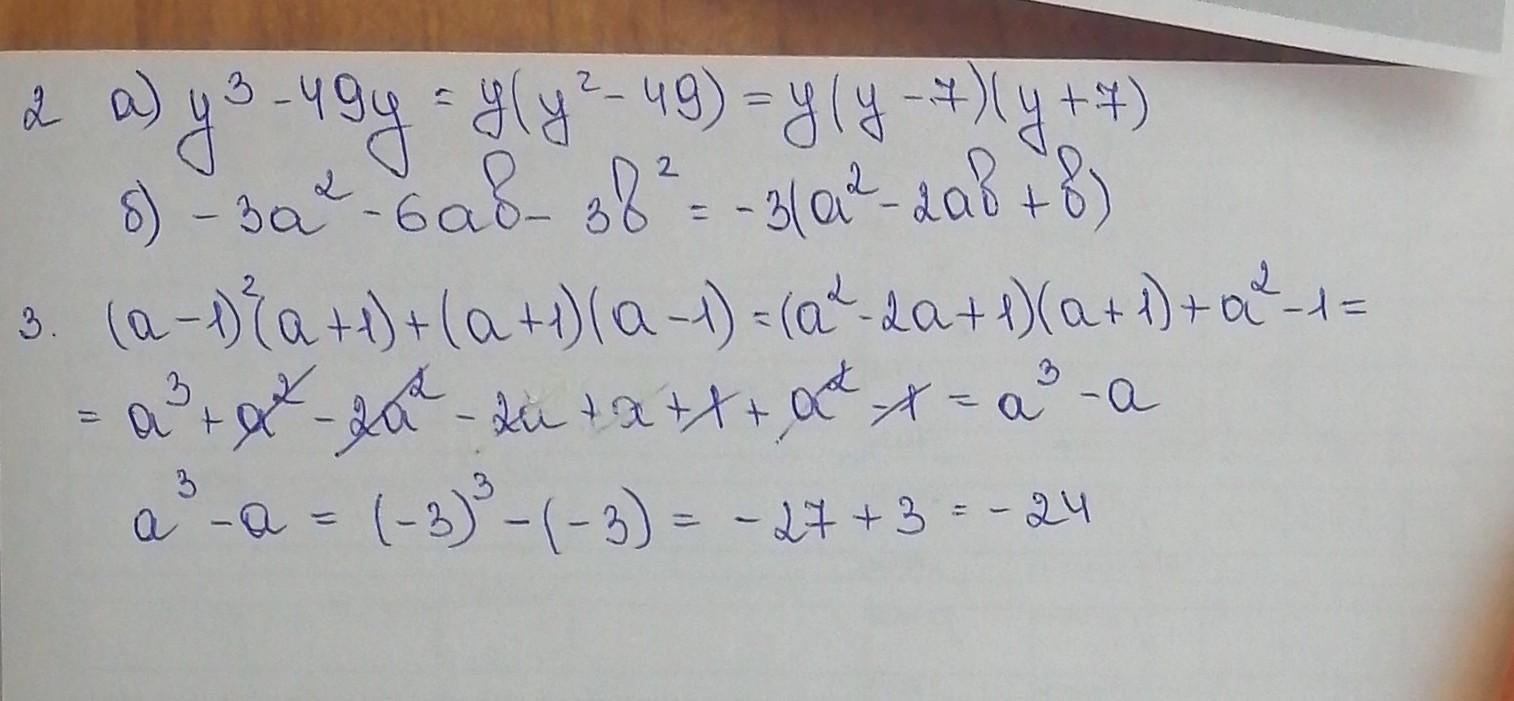 2 а) y³ - 49y = y(y² - 49) = y(y - 7)(y + 7)
б) - 3a² - 6ab - 3b² = - 3(a² - 2ab + b)
3. (a - 1)²(a + 1) + (a + 1)(a - 1) = (a² - 2a + 1)(a + 1) + a² - 1 =
= a³ + a² - 2a² - 2a + a + 1 + a² - 1 = a³ - a
a³ - a = (-3)³ - (-3) = - 27 + 3 = - 24